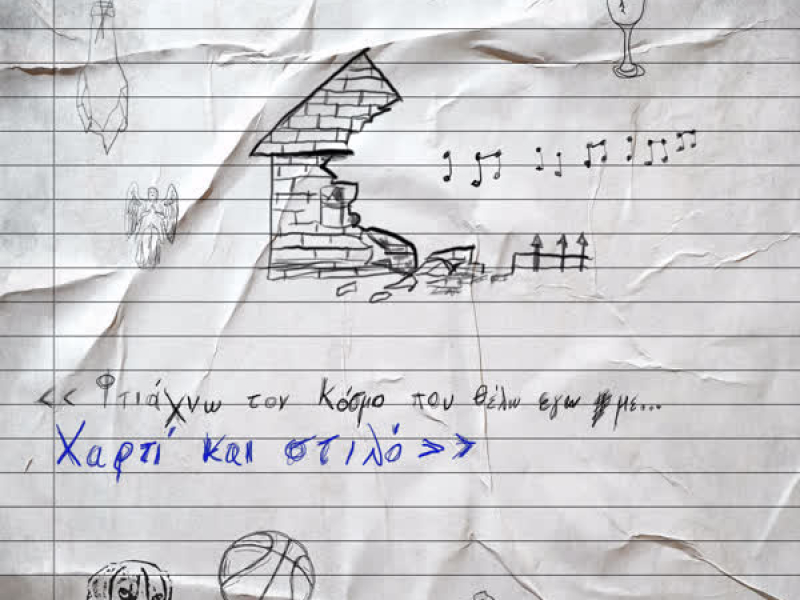 << Φτιάχνω τον Κόσμο που θέλω εγω με...
Χαρτί και στιλό >>